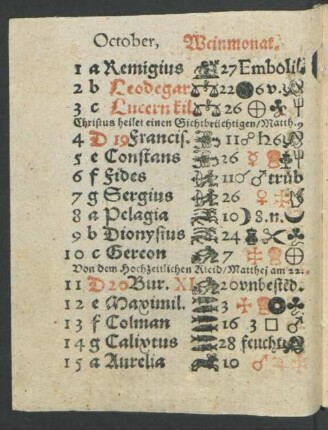 October, Weinmonat.
1 a Remigius 27 Embolis.
2 b Leodegar 22 6 v.
3 c Lucern kil. 26
Christus heilet einen Gichtbrüchtigen/Matth. 9
4 D 19 Francis. 11 ☍ ♃ 6
5 e Constans 26 ☿
6 f Fides 11 ♂ trüb
7 g Sergius 26 ♀
8 a Pelagia 10 ☽ 8. n.
9 b Dionysius 24
10 c Gereon 7
Von dem Hochzeitlichen Kleid/Matthej am 22.
11 D 20 Bur. XI. 20 vnbestēd.
12 e Maximil. 3
13 f Colman 16 3 □ ♂
14 g Calixtus 28 feucht
15 a Aurelia 10 ♂ ♃